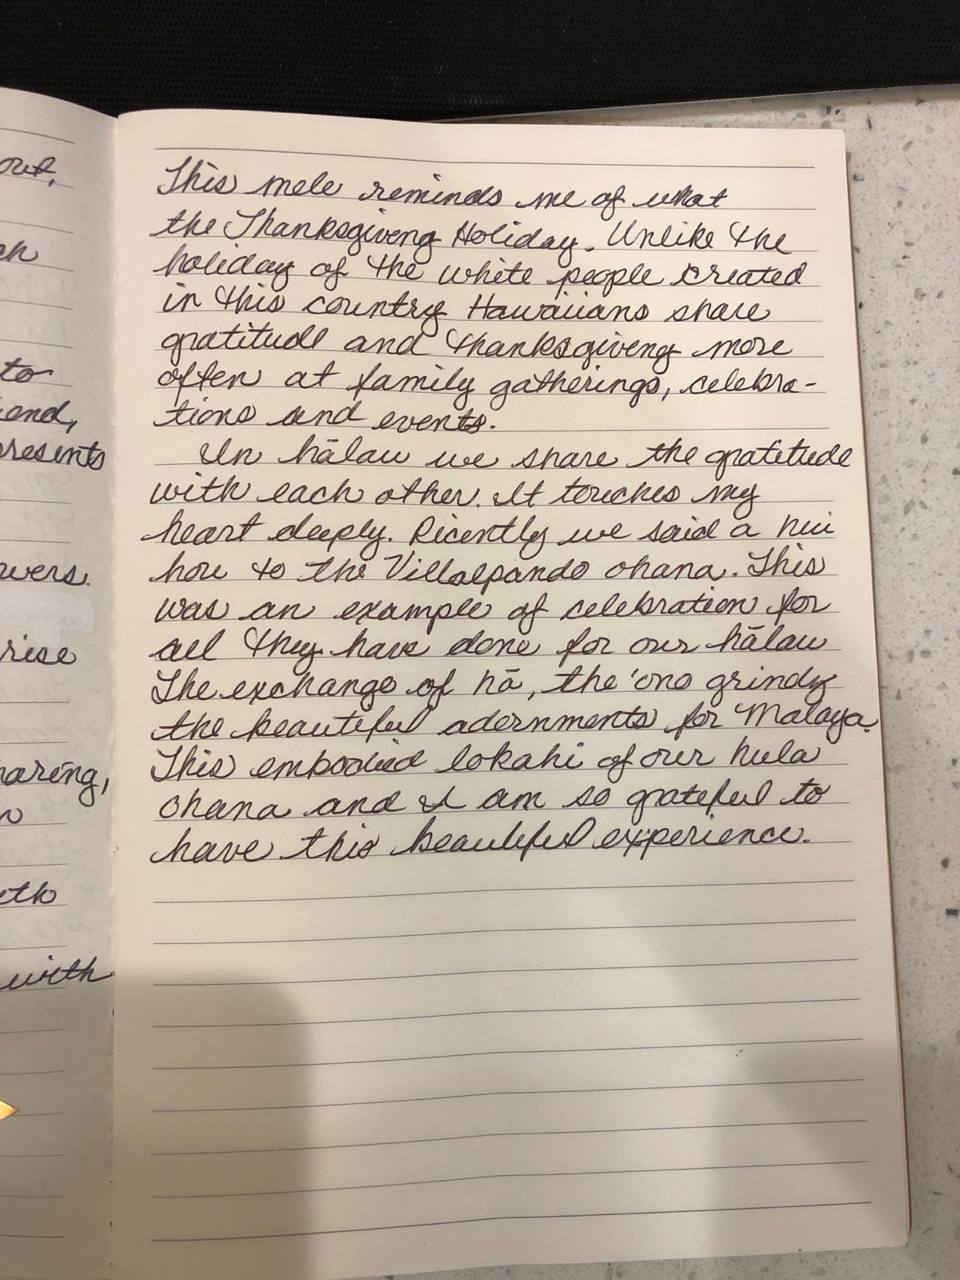 out,
ch
to
end,
presents
wers.
rise
haring,
with
This mele reminds me of what
the Thanksgiving Holiday. Unlike the
holiday of the white people created
in this country Hawaiians share
gratitude and thanksgiving more
often at family gatherings, celebra-
tions and events.
In hālau we share the gratitude
with each other. It touches my
heart deeply. Recently we said a hui
hou to the Villalpando ohana. This
was an example of celebration for
all they have done for our hālau
The exchange of hā, the 'ono grindz
the beautiful adornments for Malaya.
This embodied lokahi of our hula
ohana and I am so grateful to
have this beautiful experience.